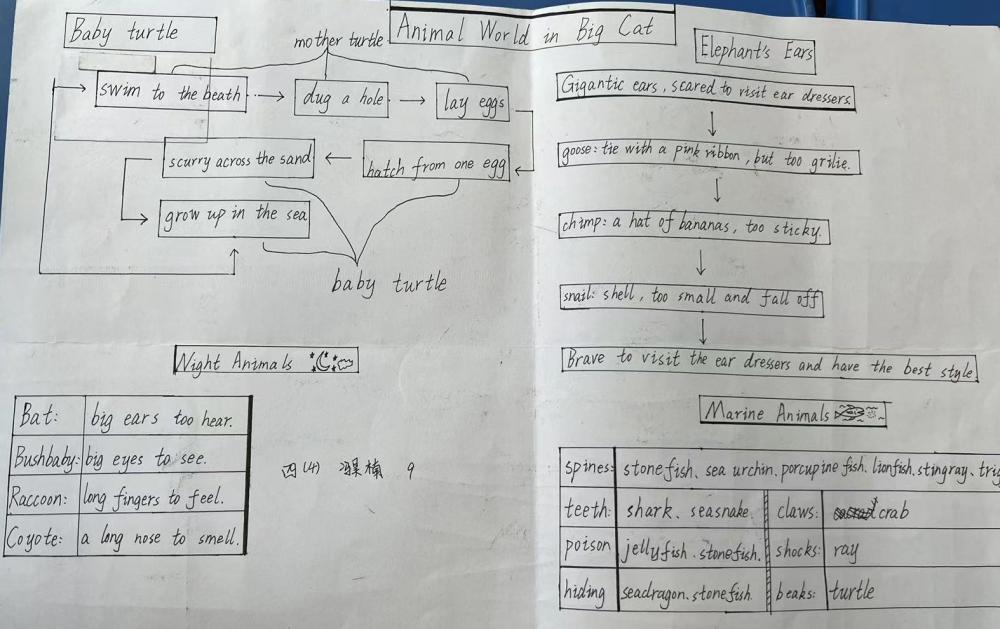 Animal World in Big Cat
Baby turtle
mother turtle
swim to the beath
dug a hole
lay eggs
hatch from one egg
scurry across the sand
grow up in the sea
baby turtle
Elephant's Ears
Gigantic ears, scared to visit ear dressers.
goose: tie with a pink ribbon, but too grilie.
chimp: a hat of bananas, too sticky.
snail: shell, too small and fall off
Brave to visit the ear dressers and have the best style.
Night Animals
Bat: big ears too hear.
Bushbaby: big eyes to see.
Raccoon: long fingers to feel.
Coyote: a long nose to smell.
四(4) 9
Marine Animals
spines: stonefish、sea urchin、porcupine fish、lionfish、stingray、trig
teeth: shark、seasnake claws: crab
poison jellyfish、stonefish. shocks: ray
hiding seadragon、stonefish beaks: turtle